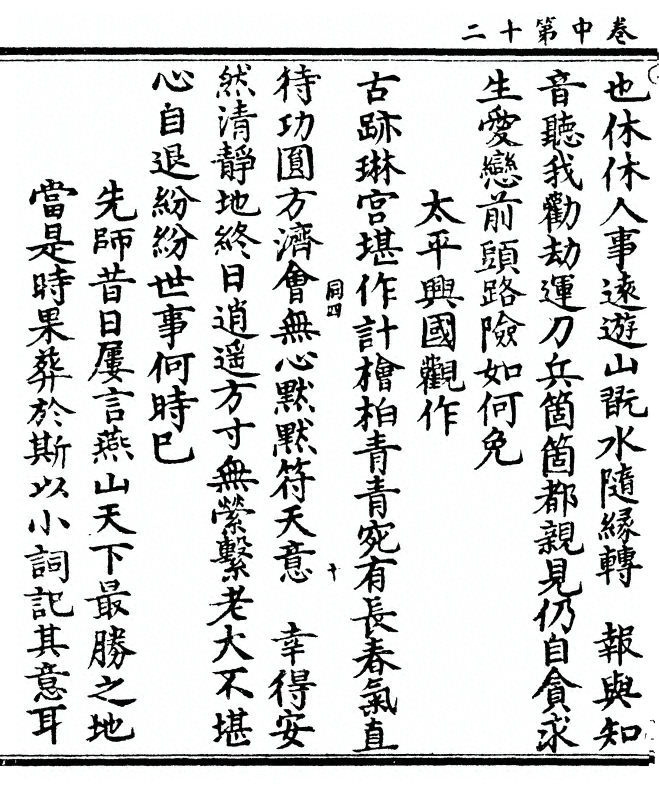 卷中第十二
也休休人事遠遊山翫水隨緣轉　報與知
音聽我勸劫運刀兵箇箇都親見仍自貪求
生愛戀前頭路險如何免
太平興國觀作
古跡琳宮堪作計檜柏青青宛有長春氣直
同四
待功圓方濟會無心默默符天意　幸得安
十
然清靜地終日逍遥方寸無縈繫老大不堪
心自退紛紛世事何時巳
先師昔日屢言燕山天下最勝之地
當是時果葬於斯以小詞記其意耳